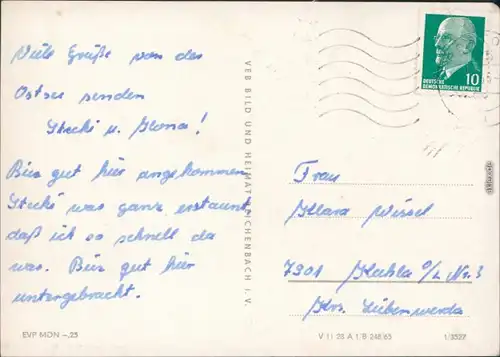 Viele Grüße von der
Ostsee senden
Stecki u. Ilona!
Bin gut hier angekommen
Stecki was ganz erstaunt,
daß ich so schnell da
war. Bin gut hier
untergebracht.
EVP MDN -,25
VEB BILD UND HEIMAT REICHENBACH I. V.
10
DEUTSCHE
DEMOKRATISCHE REPUBLIK
Frau
Klara
7901 Kahla Nr. 3
Krs. Liebenwerda
V 11 28 A 1/B 248/65
1/3527